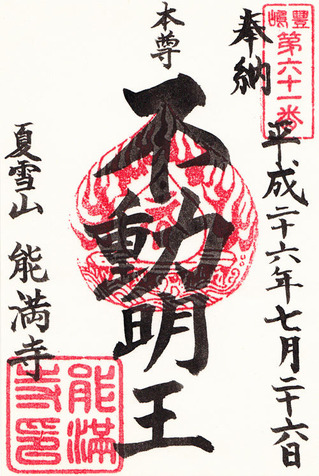 豐嶋
第六十一番
奉納
平成二十六年七月二十六日
本尊
不動明王
夏雪山 能満寺
能満寺印